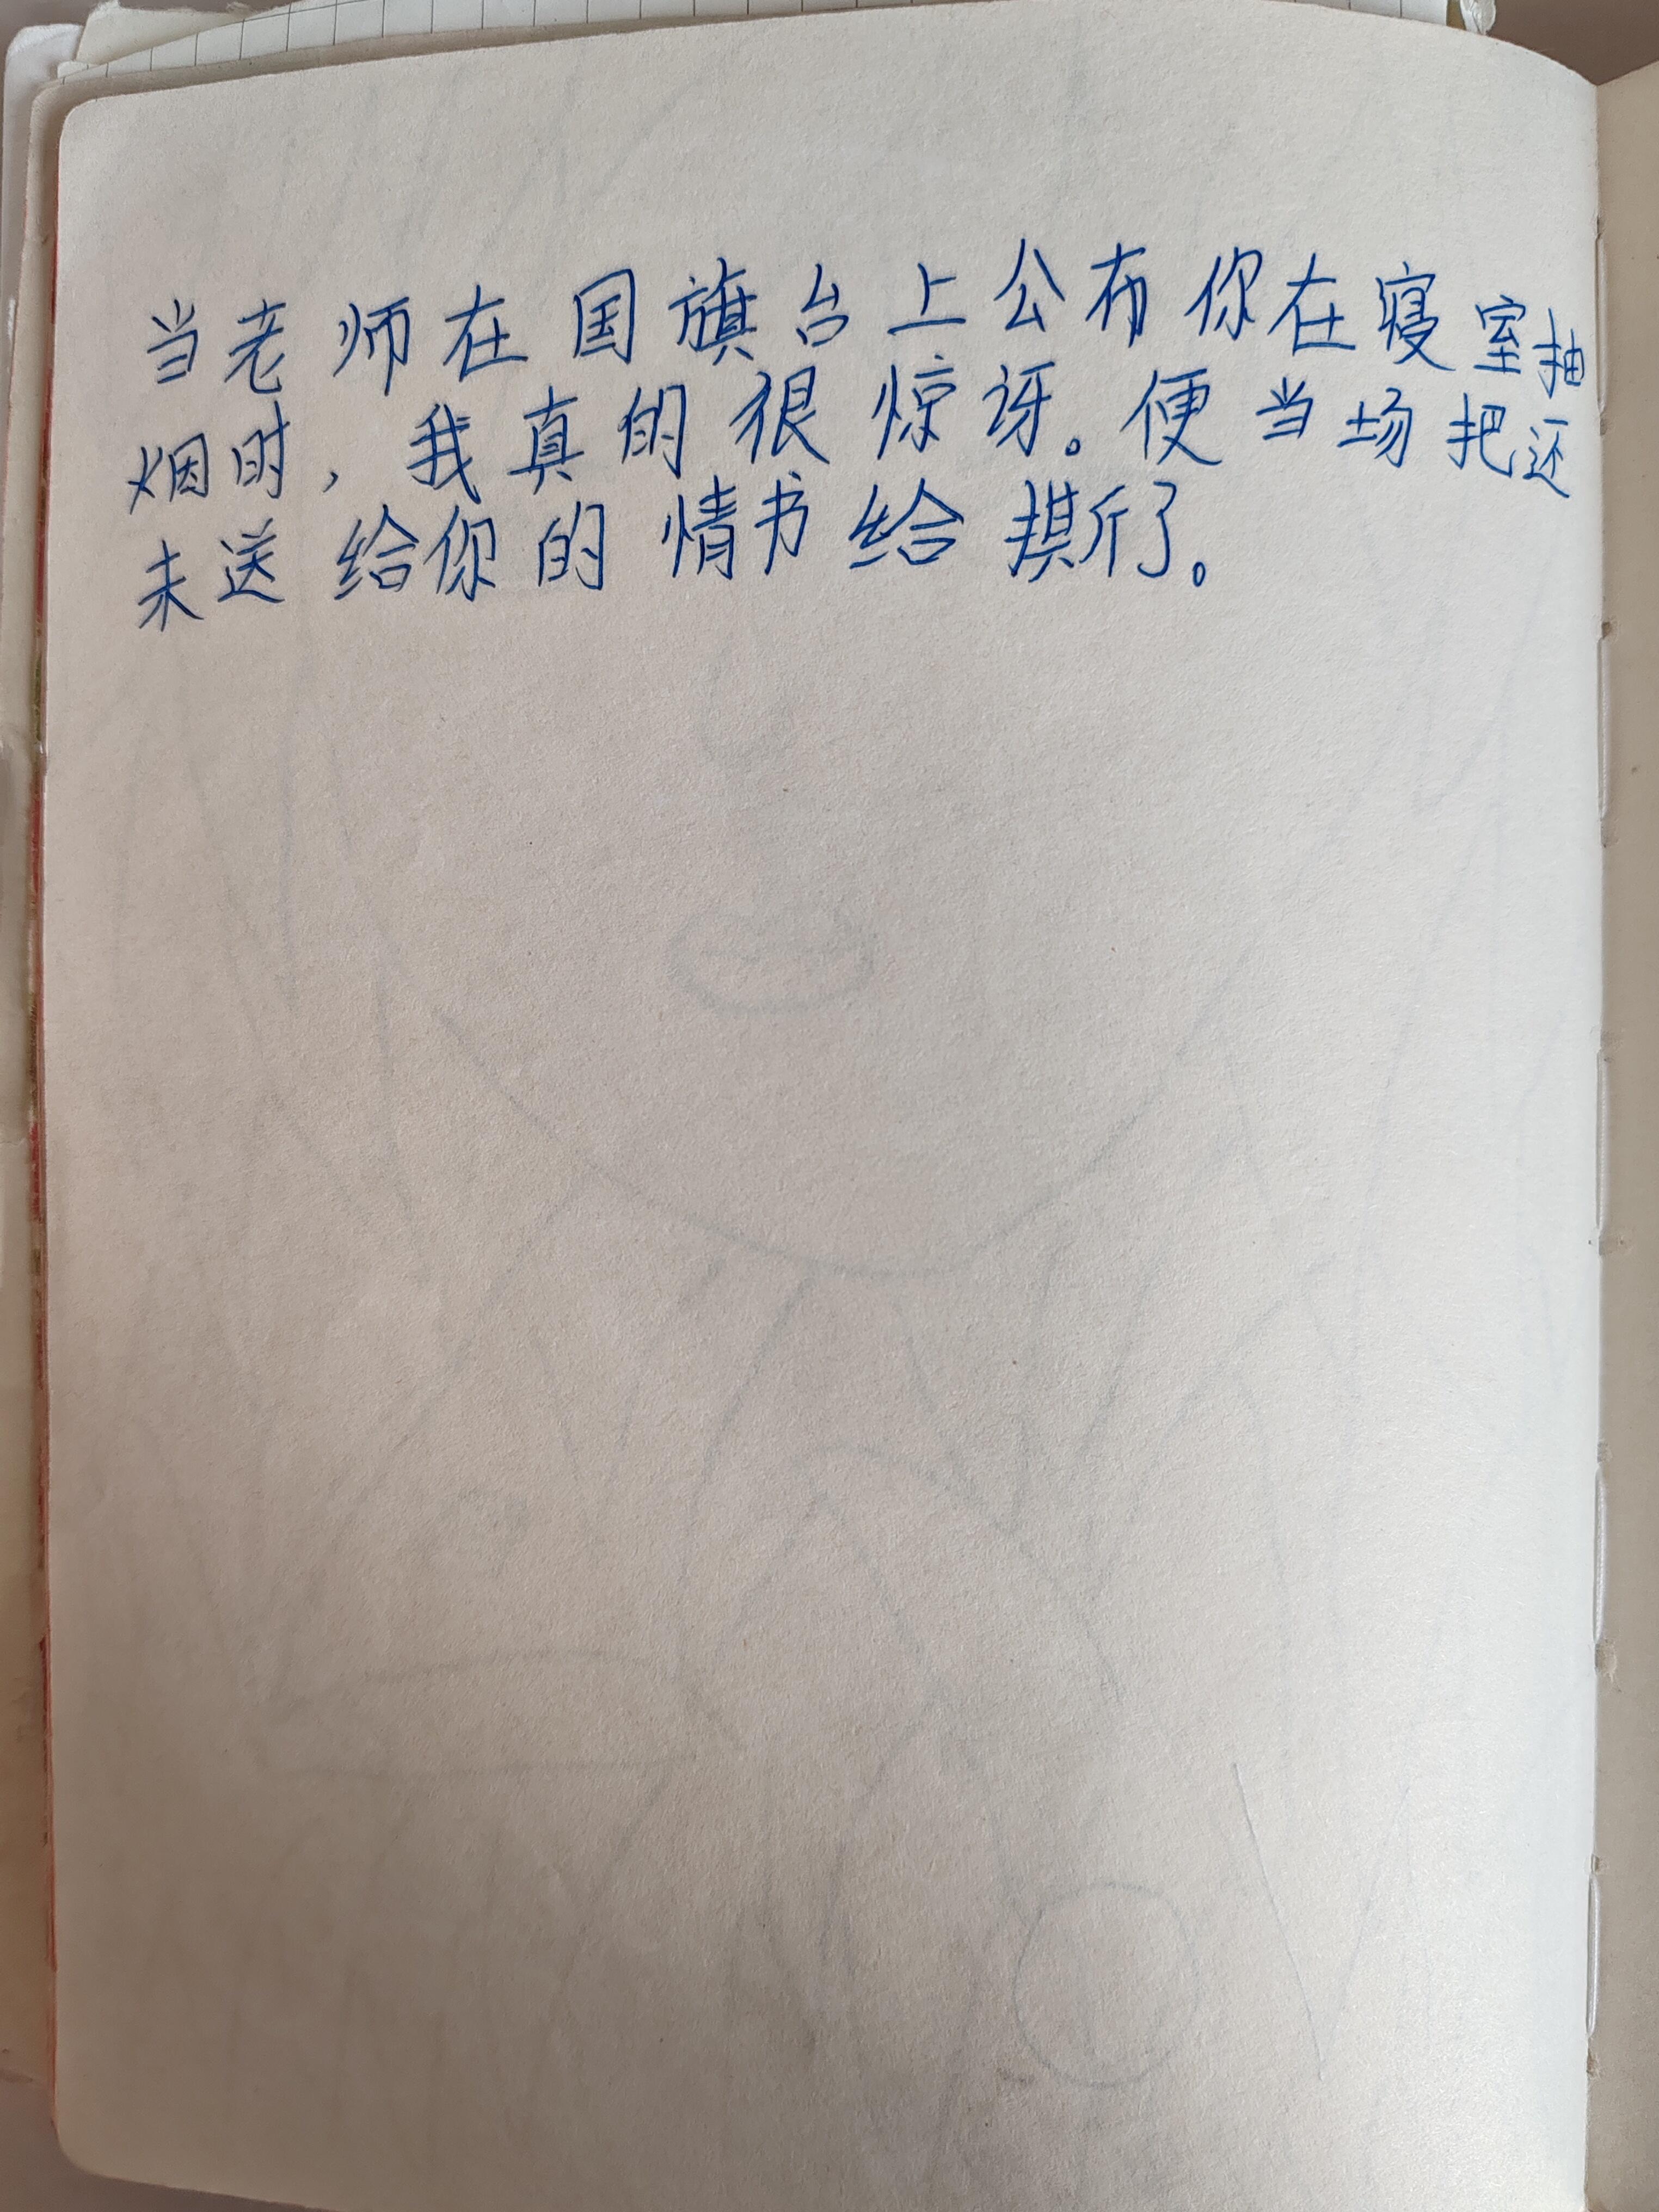 当老师在国旗台上公布你在寝室抽
烟时，我真的很惊讶。便当场把还
未送给你的情书给撕了。